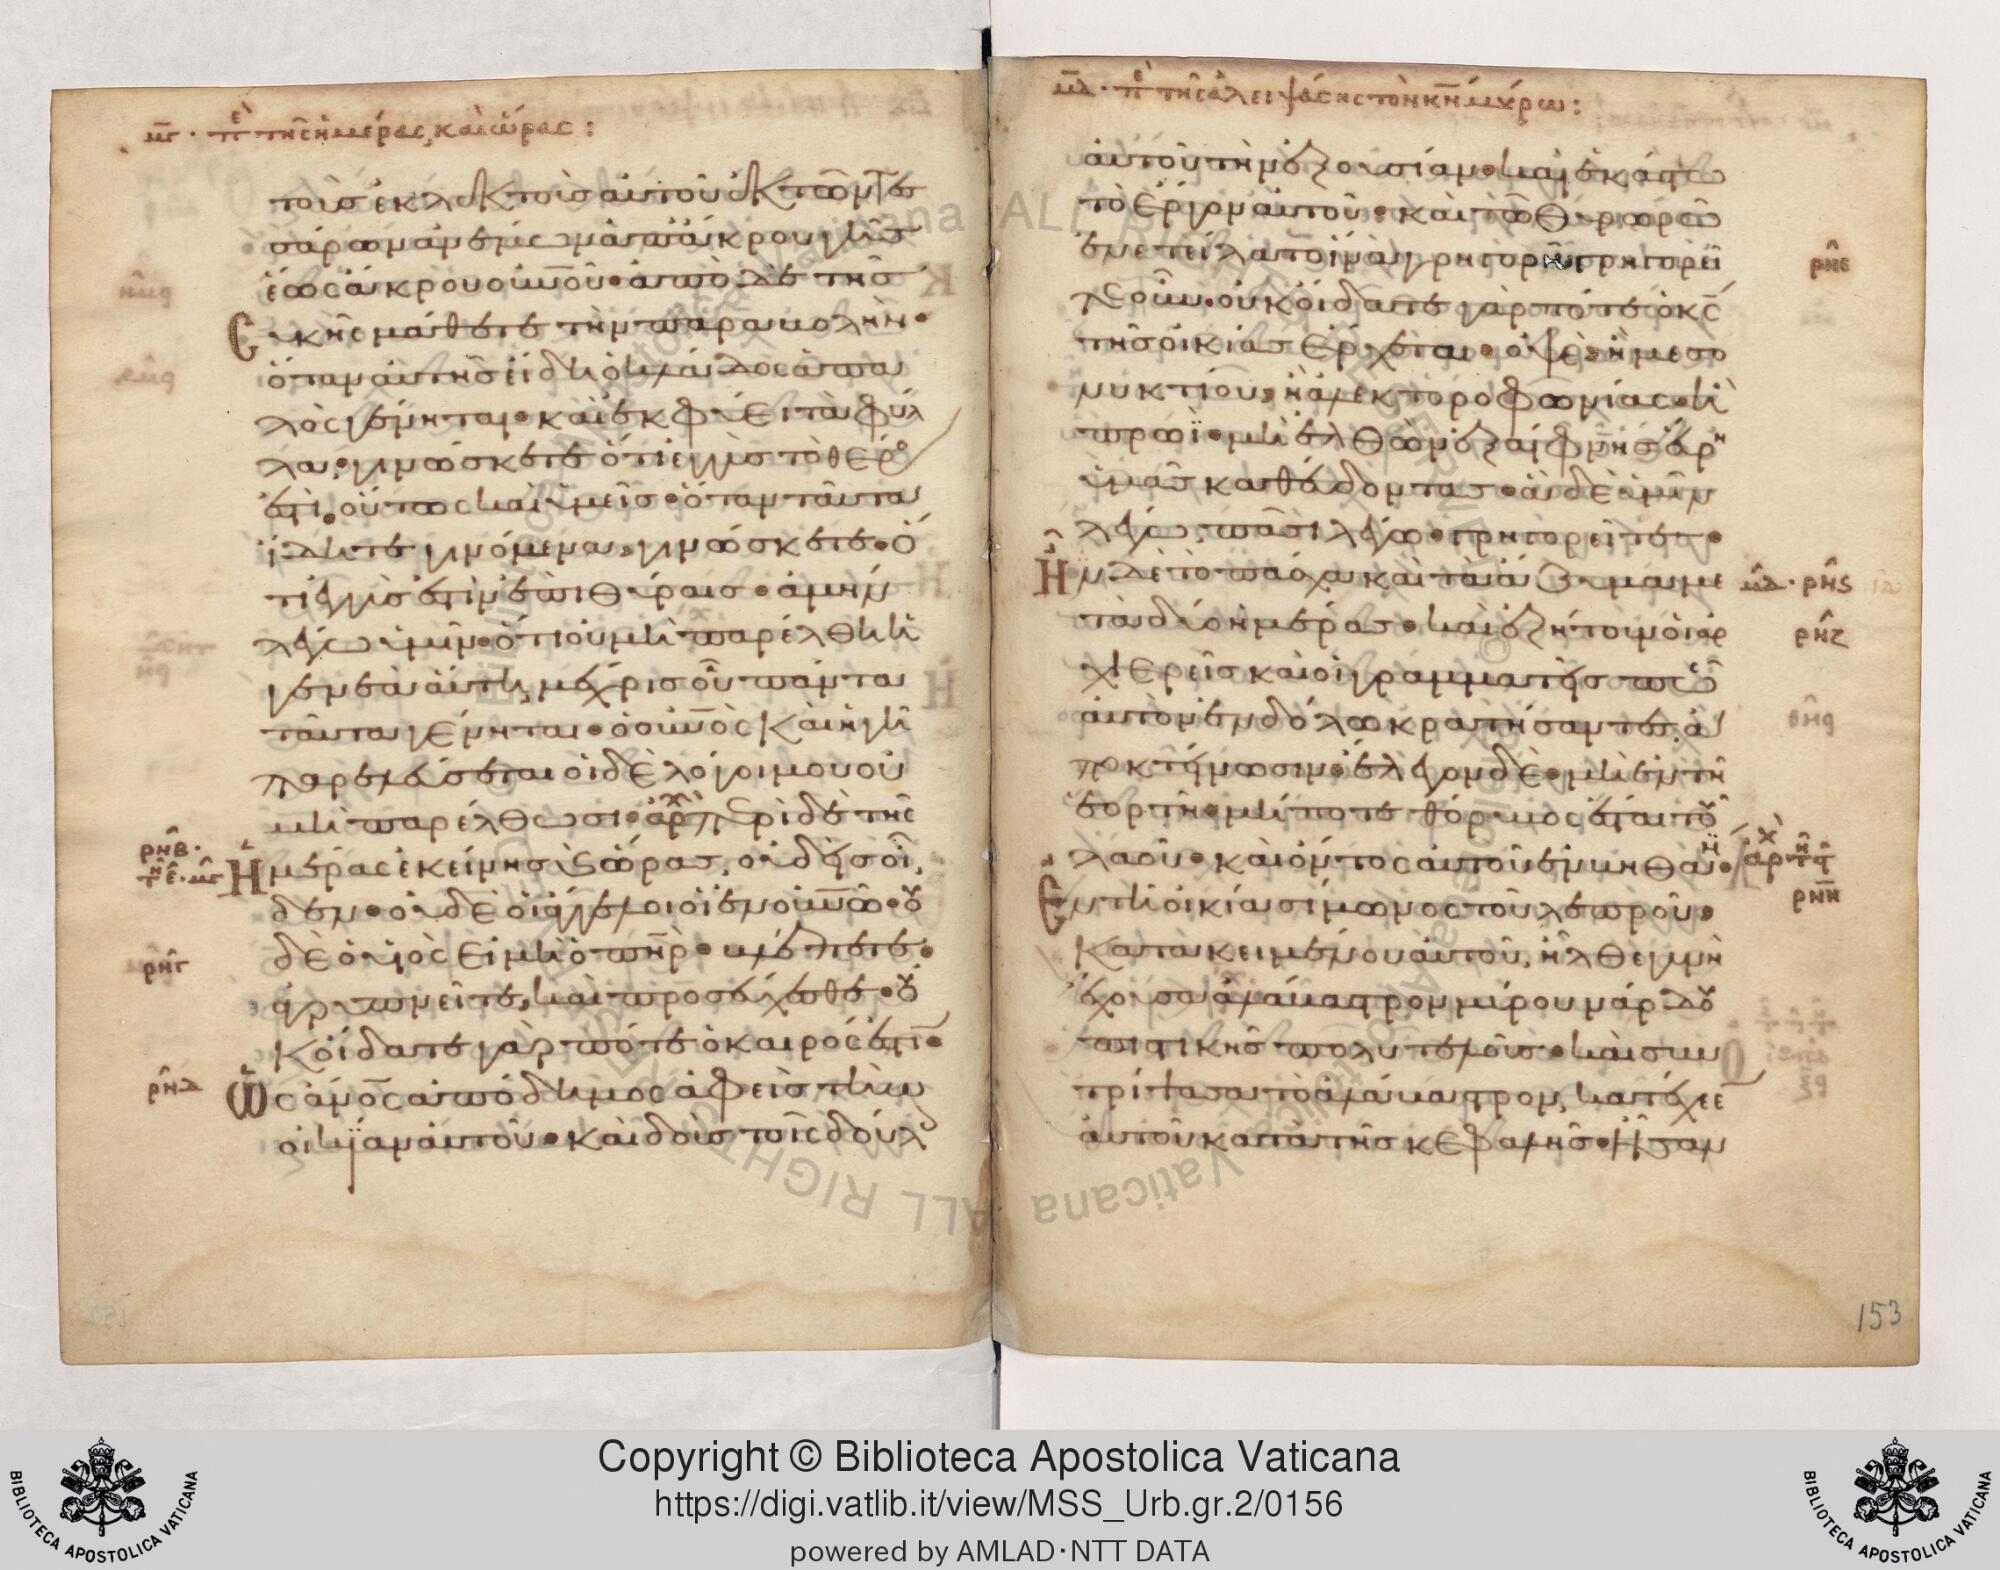 μγ · πε τῆς ἡμέρας, καὶ ὥρας :
τοὺς ἐκλεκτοὺς αὐτοῦ ἐκ τῶν τεσ
σάρων ἀνέμων ἀπἄκρου γῆς
ἕως ἄκρου οὐνοῦ· ἀπὸ δὲ τῆς
συκῆς μάθετε τὴν παραβολήν·
ὅταν αὐτῆς ἤδη ὁ κλάδος ἁπα
λὸς γένηται· καὶ ἐκφύει τὰ φύλ
λα, γινώσκετε ὅτι ἐγγὺς τὸ θέρο
ἐστὶ, οὕτως καὶ ὑμεῖς· ὅταν ταῦτα
ἴδητε γινόμενα, γινώσκετε· ὅ
τι ἐγγὺς ἐστὶν ἐπὶ θύραις· ἀμὴν
λέγω ὑμῖν· ὅτι οὐ μὴ παρέλθη ἡ
γενεὰ αὕτη, μέχρις οὗ πάντα
ταῦτα γένηται· ὁ οὐνὸς καὶ ἡ γῆ
παρελεύσεται οἱ δὲ λόγοι μου οὐ
μὴ παρέλθωσι· ἀρχ Περὶ δὲ τῆς
ρμβ·
μγ Ἡμέρας ἐκείνης ἢ ὥρας, οὐδεὶς οἶ
δεν· οὐδὲ οἱ ἄγγελοι οἱ ἐν οὐνῶ· οὐ
ρμγ δὲ ὁ υἱὸς εἰ μὴ ὁ πηρ· βλέπετε·
ἀγρυπνεῖτε, καὶ προσεύχεσθε· οὐ
κ οἴδατε γὰρ πότε ὁ καιρός ἐστιν·
ρμδ Ὡς ἄνος ἀπόδημος ἀφεὶς τὴν
οἰκίαν αὐτοῦ· καὶ δοὺς τοῖς δούλ
μδ · πε τῆς ἀλειψάσης τὸν κν μύρω :
αὐτοῦ τὴν ἐξουσίαν· καὶ ἑκάστω
τὸ ἔργον αὐτοῦ· καὶ τῶ θυρωρῶ
ἐνετείλατο ἵνα γρηγορῆ· γρηγορεῖ ρμε
τε οὖν· οὐκ οἴδατε γὰρ πότε ὁ κς
τῆς οἰκίας ἔρχεται· ὀψὲ, ἢ μεσο
νυκτίου, ἢ ἀλεκτοροφωνίας· ἢ
πρωΐ· μὴ ἐλθὼν ἐξαίφνης εὕρη
ὑμᾶς καθεύδοντας· ἃ δὲ ὑμῖν
λέγω, πᾶσι λέγω· γρηγορεῖτε·
Ἦν δὲ τὸ πάσχα καὶ τὰ ἄζυμα με μδ · ρμς
τὰ δύο ἡμέρας· καὶ ἐζήτουν οἱ ἀρ ρμζ
χιερεῖς καὶ οἱ γραμματεῖς πῶς
αὐτὸν ἐν δόλω κρατήσαντες ἀ
ποκτείνωσιν· ἔλεγον δὲ· μὴ ἐν τῆ
ἑορτῆ· μήποτε θόρυβος ἔσται τοῦ
λαοῦ· καὶ ὄντος αὐτοῦ ἐν βηθανί· ἀρχ
Ἐν τῆ οἰκία σίμωνος τοῦ λεπροῦ· ρμη
κατακειμένου αὐτοῦ, ἦλθε γυνὴ
ἔχουσα ἀλάβαστρον μύρου νάρδου
πιστικῆς πολυτελοῦς· καὶ συν
τρίψασα τὸ ἀλάβαστρον, κατέχεε
αὐτοῦ κατὰ τῆς κεφαλῆς· ἦσαν
153
Copyright © Biblioteca Apostolica Vaticana
https://digi.vatlib.it/view/MSS_Urb.gr.2/0156
powered by AMLAD·NTT DATA
BIBLIOTECA APOSTOLICA VATICANA
BIBLIOTECA APOSTOLICA VATICANA